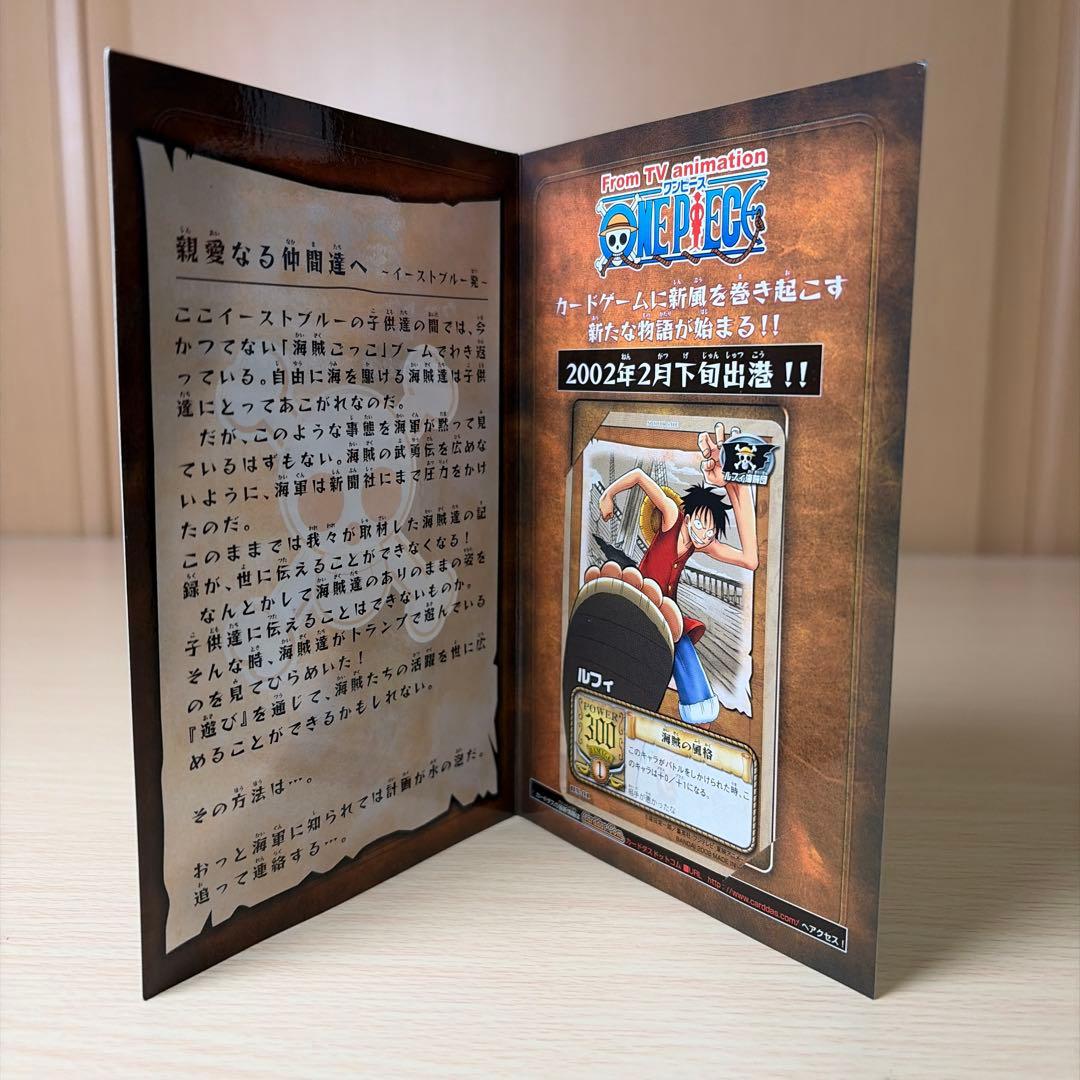 親愛なる仲間達へ ~イーストブルー発~
ここイーストブルーの子供達の間では、今
かつてない「海賊ごっこ」ブームでわき返
っている。自由に海を駆ける海賊達は子供
達にとってあこがれなのだ。
だが、このような事態を海軍が黙って見
ているはずもない。海賊の武勇伝を広めな
いように、海軍は新聞社にまで圧力をかけ
たのだ。
このままでは我々が取材した海賊達の記
録が、世に伝えることができなくなる!
なんとかして海賊達のありのままの姿を
子供達に伝えることはできないものか。
そんな時、海賊達がトランプで遊んでいる
のを見てひらめいた!
『遊び』を通じて、海賊たちの活躍を世に広
めることができるかもしれない。
その方法は…。
おっと海軍に知られては計画が水の泡だ。
追って連絡する…。
From TV animation
ワンピース
ONE PIECE
カードゲームに新風を巻き起こす
新たな物語が始まる!!
2002年2月下旬出港!!
ルフィ海賊団
ルフィ
POWER
300
1
海賊の風格
このキャラがバトルをしかけられた時、こ
のキャラは+0/+1になる。
相手が悪かったな
カードダスドットコム ■URL http://www.carddas.com/ へアクセス!